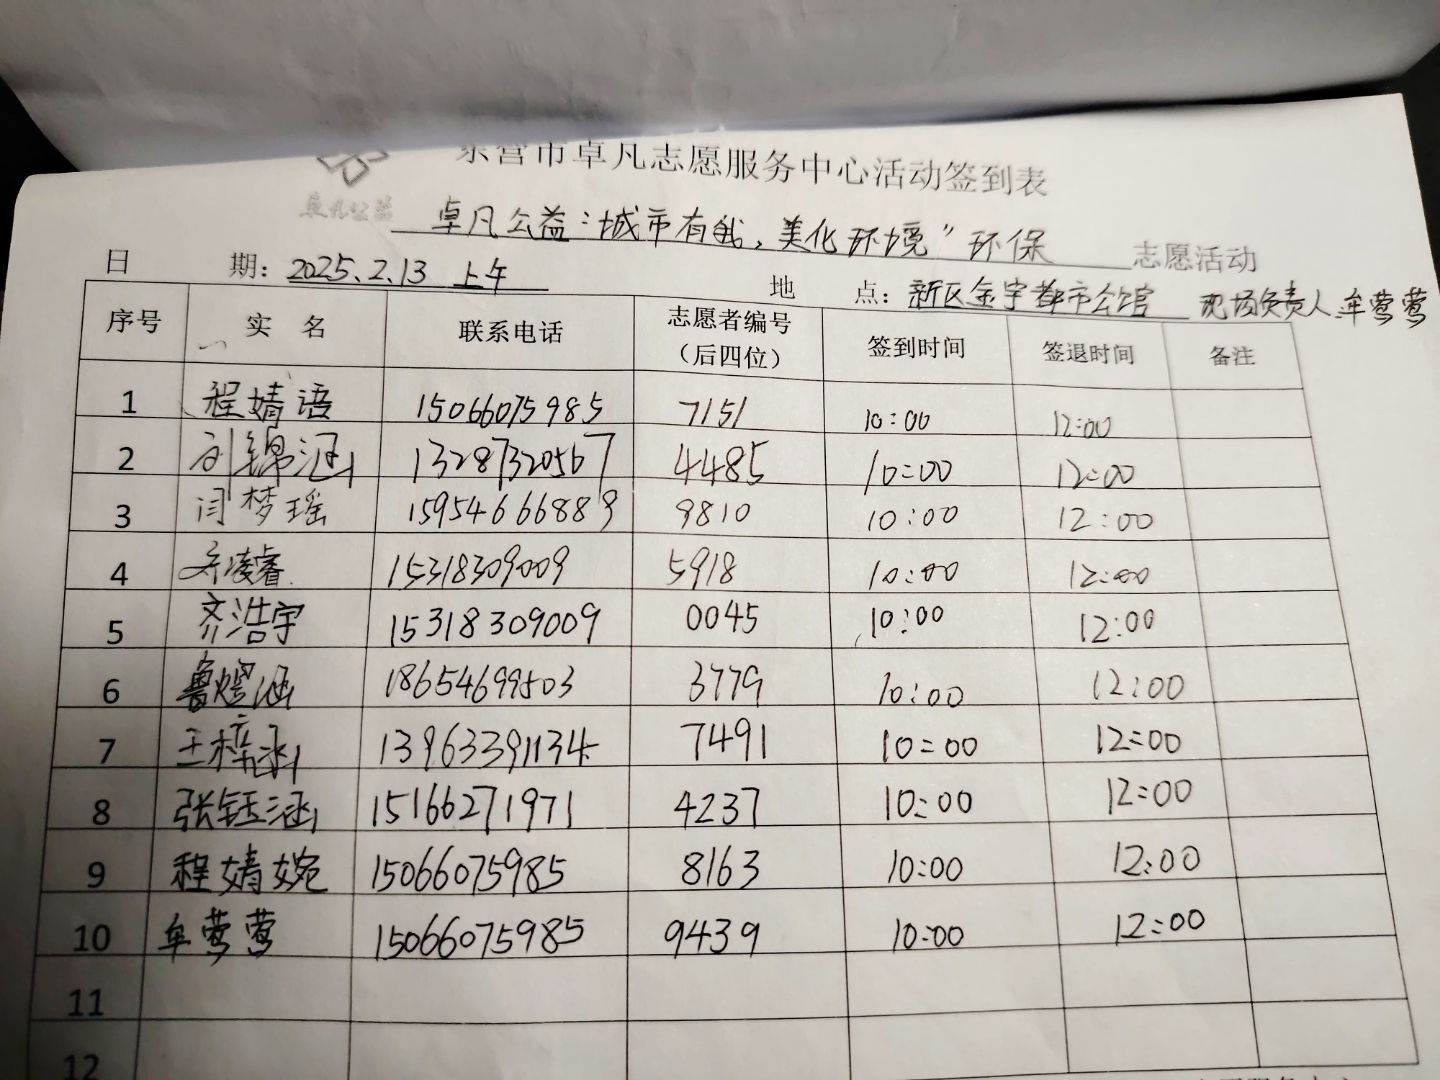 东营市卓凡志愿服务中心活动签到表
卓凡公益
卓凡公益:"城市有我,美化环境"环保 志愿活动
日 期: 2025.2.13 上午 地 点: 新区金宇都市公馆 现场负责人:牟莺莺
序号 实 名 联系电话 志愿者编号(后四位) 签到时间 签退时间 备注
1 程婧语 15066075985 7151 10:00 12:00
2 刘锦涵 13287320567 4485 10:00 12:00
3 闫梦瑶 15954666889 9810 10:00 12:00
4 齐凌睿 15318309009 5918 10:00 12:00
5 齐浩宇 15318309009 0045 10:00 12:00
6 鲁煜涵 18654699503 3779 10:00 12:00
7 王梓涵 13963391134 7491 10:00 12:00
8 张钰涵 15166271971 4237 10:00 12:00
9 程婧婉 15066075985 8163 10:00 12:00
10 牟莺莺 15066075985 9439 10:00 12:00
11
12